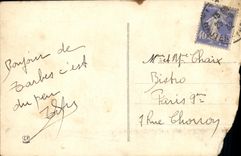 Bonjour de
Tarbes c'est
du peu
Mme et Mr Chaix
Bistro
Paris 9e
7 Rue Choron